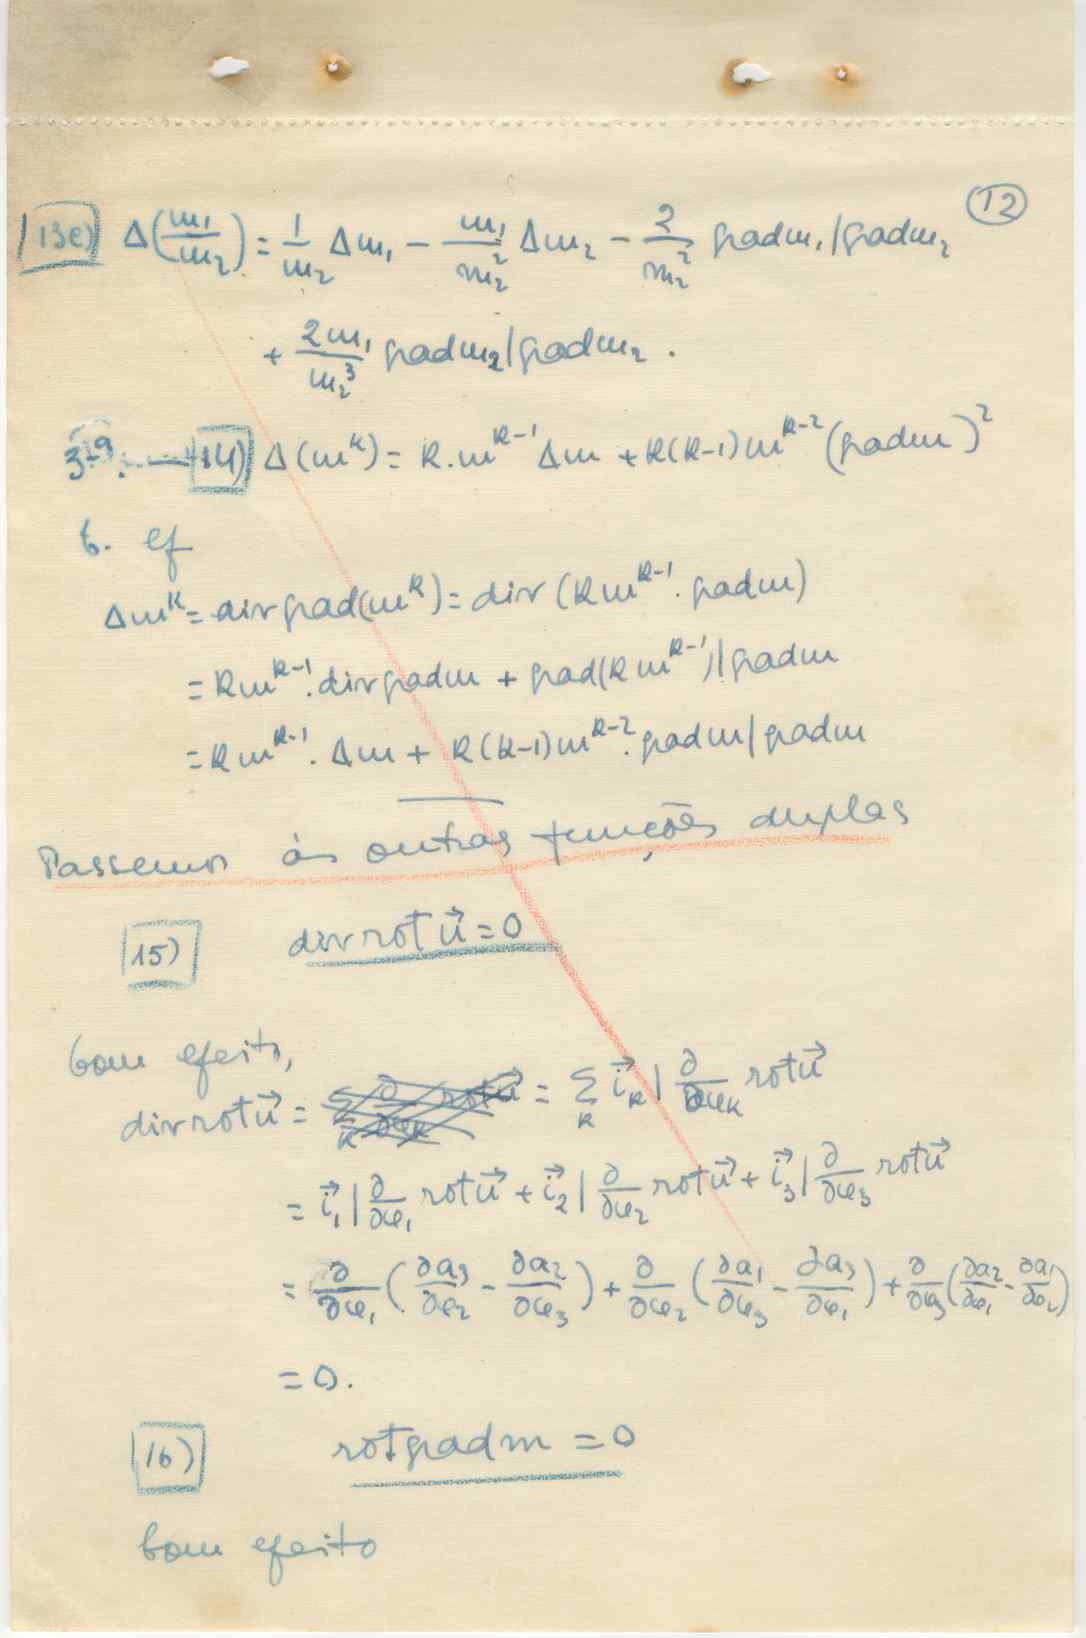 12
13e) Δ(m₁/m₂) = 1/m₂ Δm₁ − m₁/m₂² Δm₂ − 2/m₂² grad m₁ | grad m₂
+ 2m₁/m₂³ grad m₂ | grad m₂ .
14) Δ(mᵏ) = k.mᵏ⁻¹ Δm + k(k-1)mᵏ⁻² (grad m)²
C. ef
Δmᵏ = div grad(mᵏ) = div (k mᵏ⁻¹. grad m)
= k mᵏ⁻¹. div grad m + grad(k mᵏ⁻¹) | grad m
= k mᵏ⁻¹. Δm + k(k-1)mᵏ⁻². grad m | grad m
Passemos às outras funções duplas
15) div rot u⃗ = 0
Com efeito,
div rot u⃗ = = Σₖ i⃗ₖ | ∂/∂xₖ rot u⃗
= i⃗₁ | ∂/∂x₁ rot u⃗ + i⃗₂ | ∂/∂x₂ rot u⃗ + i⃗₃ | ∂/∂x₃ rot u⃗
= ∂/∂x₁ (∂a₃/∂x₂ − ∂a₂/∂x₃) + ∂/∂x₂ (∂a₁/∂x₃ − ∂a₃/∂x₁) + ∂/∂x₃ (∂a₂/∂x₁ − ∂a₁/∂x₂)
= 0.
16) rot grad m = 0
Com efeito